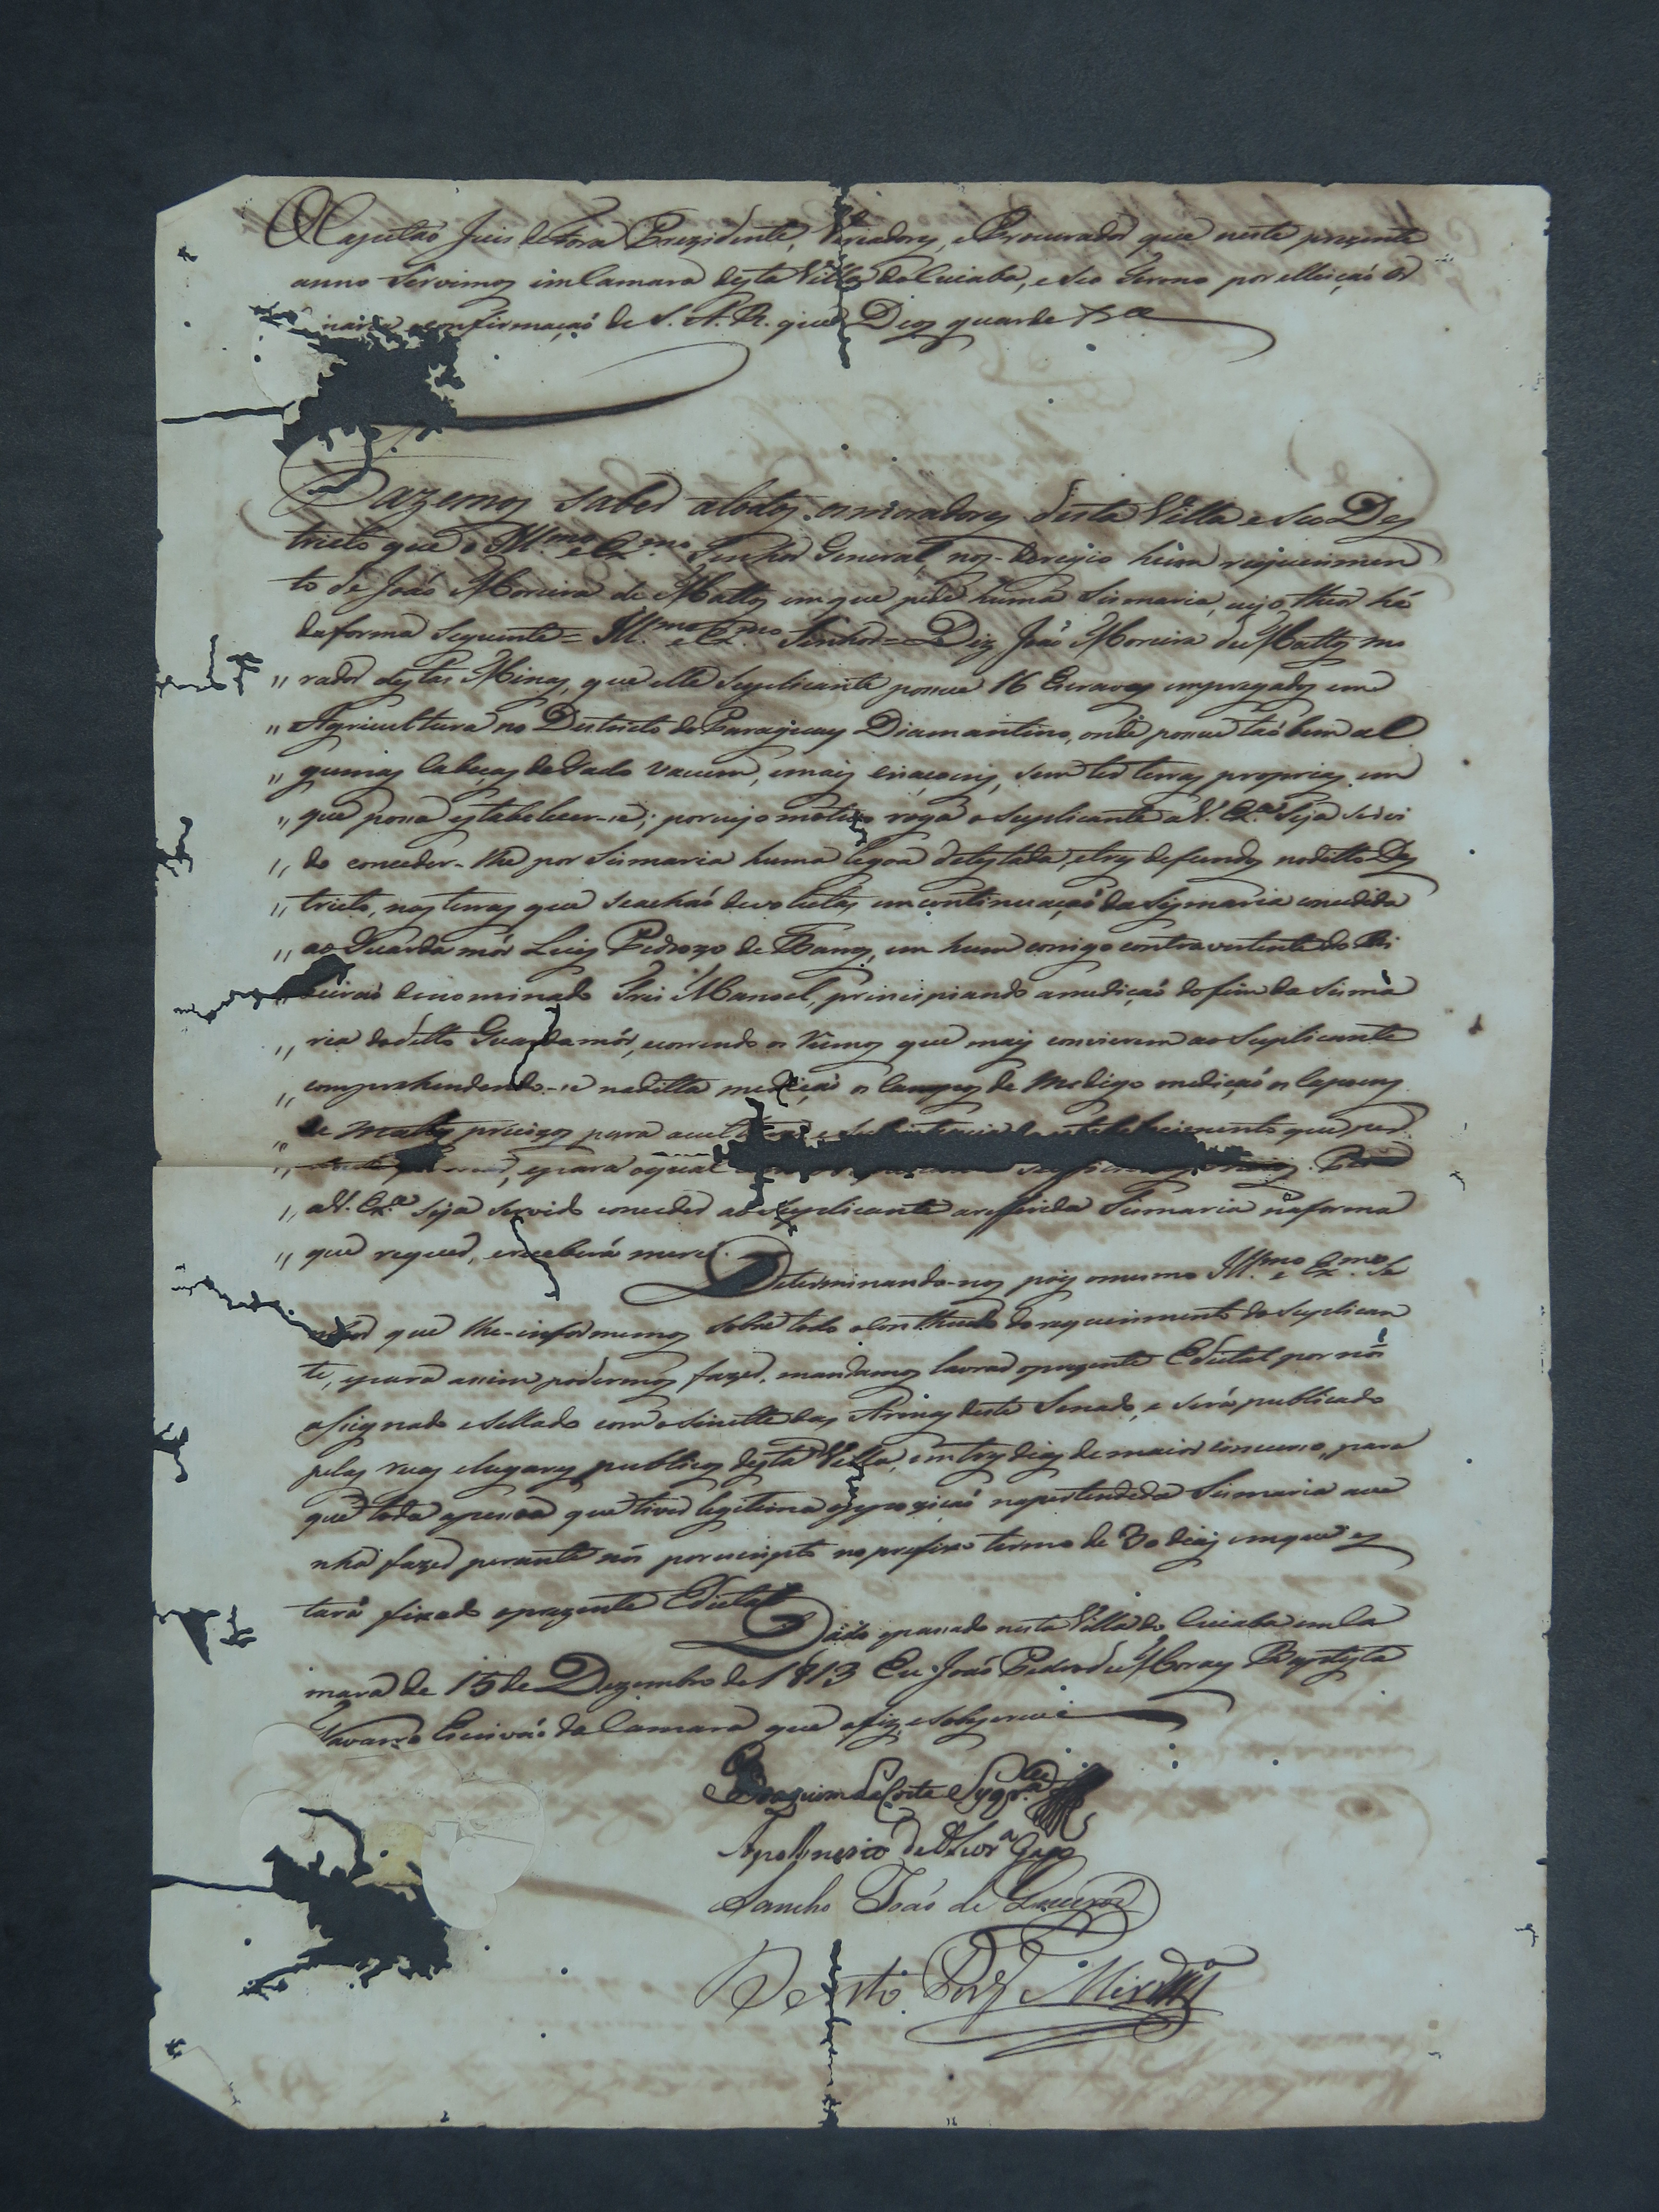 O Capitão Juis de Fora Prezidente, Veriadores, e Procurador que neste prezente
anno servimos em Camara desta Villa do Cuiaba, e seo termo por elleição Or
confirmaçaõ de S. A. R. que Deos guarde &ca
Fazemos saber a todos os moradores desta Villa e seo Des
tricto que o Ill.mo e Ex.mo Senhor General, nos-deregio hum requerimen
to de João Moreira de Mattos em que pede huma Sismaria, cujo theor hé
da forma seguente = Ill.mo e Ex.mo Senhor = Diz João Moreira de Mattos mo
" rador destas Minas, que elle Suplicante possue 16 Escravos empregados em
" Agricultura no Destricto do Paraguay Diamantino, onde possue taõbem al
" gumas Cabeças de Gado vacum, e mais criaçoens, sem ter terras proprias em
" que possa estabelecer-se; por cujo motivo roga o Suplicante a V. Ex.a seja servi
" do conceder-lhe por Sismaria huma legoa de testada, e tres de fundos no ditto Des
" tricto, nas terras que se achaõ devolutas em continuaçaõ da Sismaria concedida
" ao Guarda mór Luis Pedrozo de Barros, em hum corrigo contravertente do Ri
" beiraõ denominado Frei Manoel, principiando a mediçaõ do fim da Sisma
" ria do ditto Guarda mór, e correndo os rumos que mais convierem ao Suplicante
" comprehendendo-se na ditta mediçaõ os Campos de medigo mediçaõ os Capoens
" de mattos precizos para a cultura e estabelecimento que per
" e para o qual
" a V. Ex.a seja servido conceder ao Suplicante a refferida Sismaria na forma
" que requer, e receberá mercê. Determinando-nos pois o mesmo Ill.mo e Ex.mo Se
nhor que lhe-informemos sobre todo o Contheudo do requerimento do Suplican
te, e para assim podermos fazer, mandamos lavrar o prezente Edictal por nós
assignado e sellado com o sinette das Armas deste Senado, e será publicado
pelas ruas e lugares publicos desta Villa, em tres dias de maior concurso, para
que toda a pessoa que tiver legitima oppoziçaõ na pertendida Sismaria a ve
nha fazer perante nós por escripto no prefixo termo de 30 dias em que es
tará fixado o prezente Edictal. Dado e passado nesta Villa do Cuiaba em Ca
mara de 15 de Dezembro de 1813 Eu João Pedro de Moraes Baptysta
Navarro Escrivaõ da Camara que o fiz e sobescrevi
Apolinario de Oliv.ra Gago
Sancho João de Queiroz
Bento